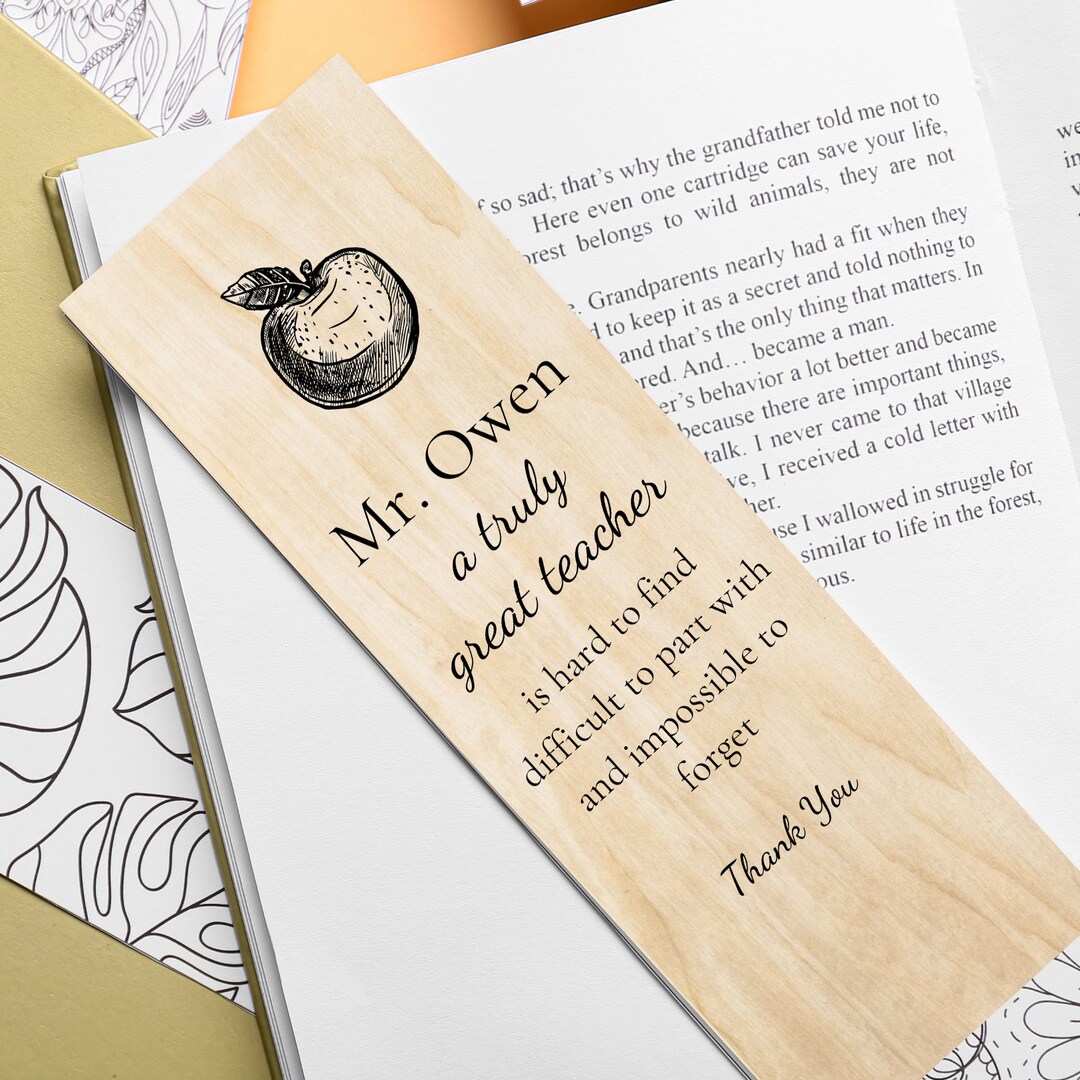 Mr. Owen
a truly
great teacher
is hard to find
difficult to part with
and impossible to
forget
Thank You
so sad; that's why the grandfather told me not to
Here even one cartridge can save your life,
belongs to wild animals, they are not
Grandparents nearly had a fit when they
to keep it as a secret and told nothing to
and that's the only thing that matters. In
And… became a man.
behavior a lot better and became
because there are important things,
talk. I never came to that village
I received a cold letter with
I wallowed in struggle for
similar to life in the forest,